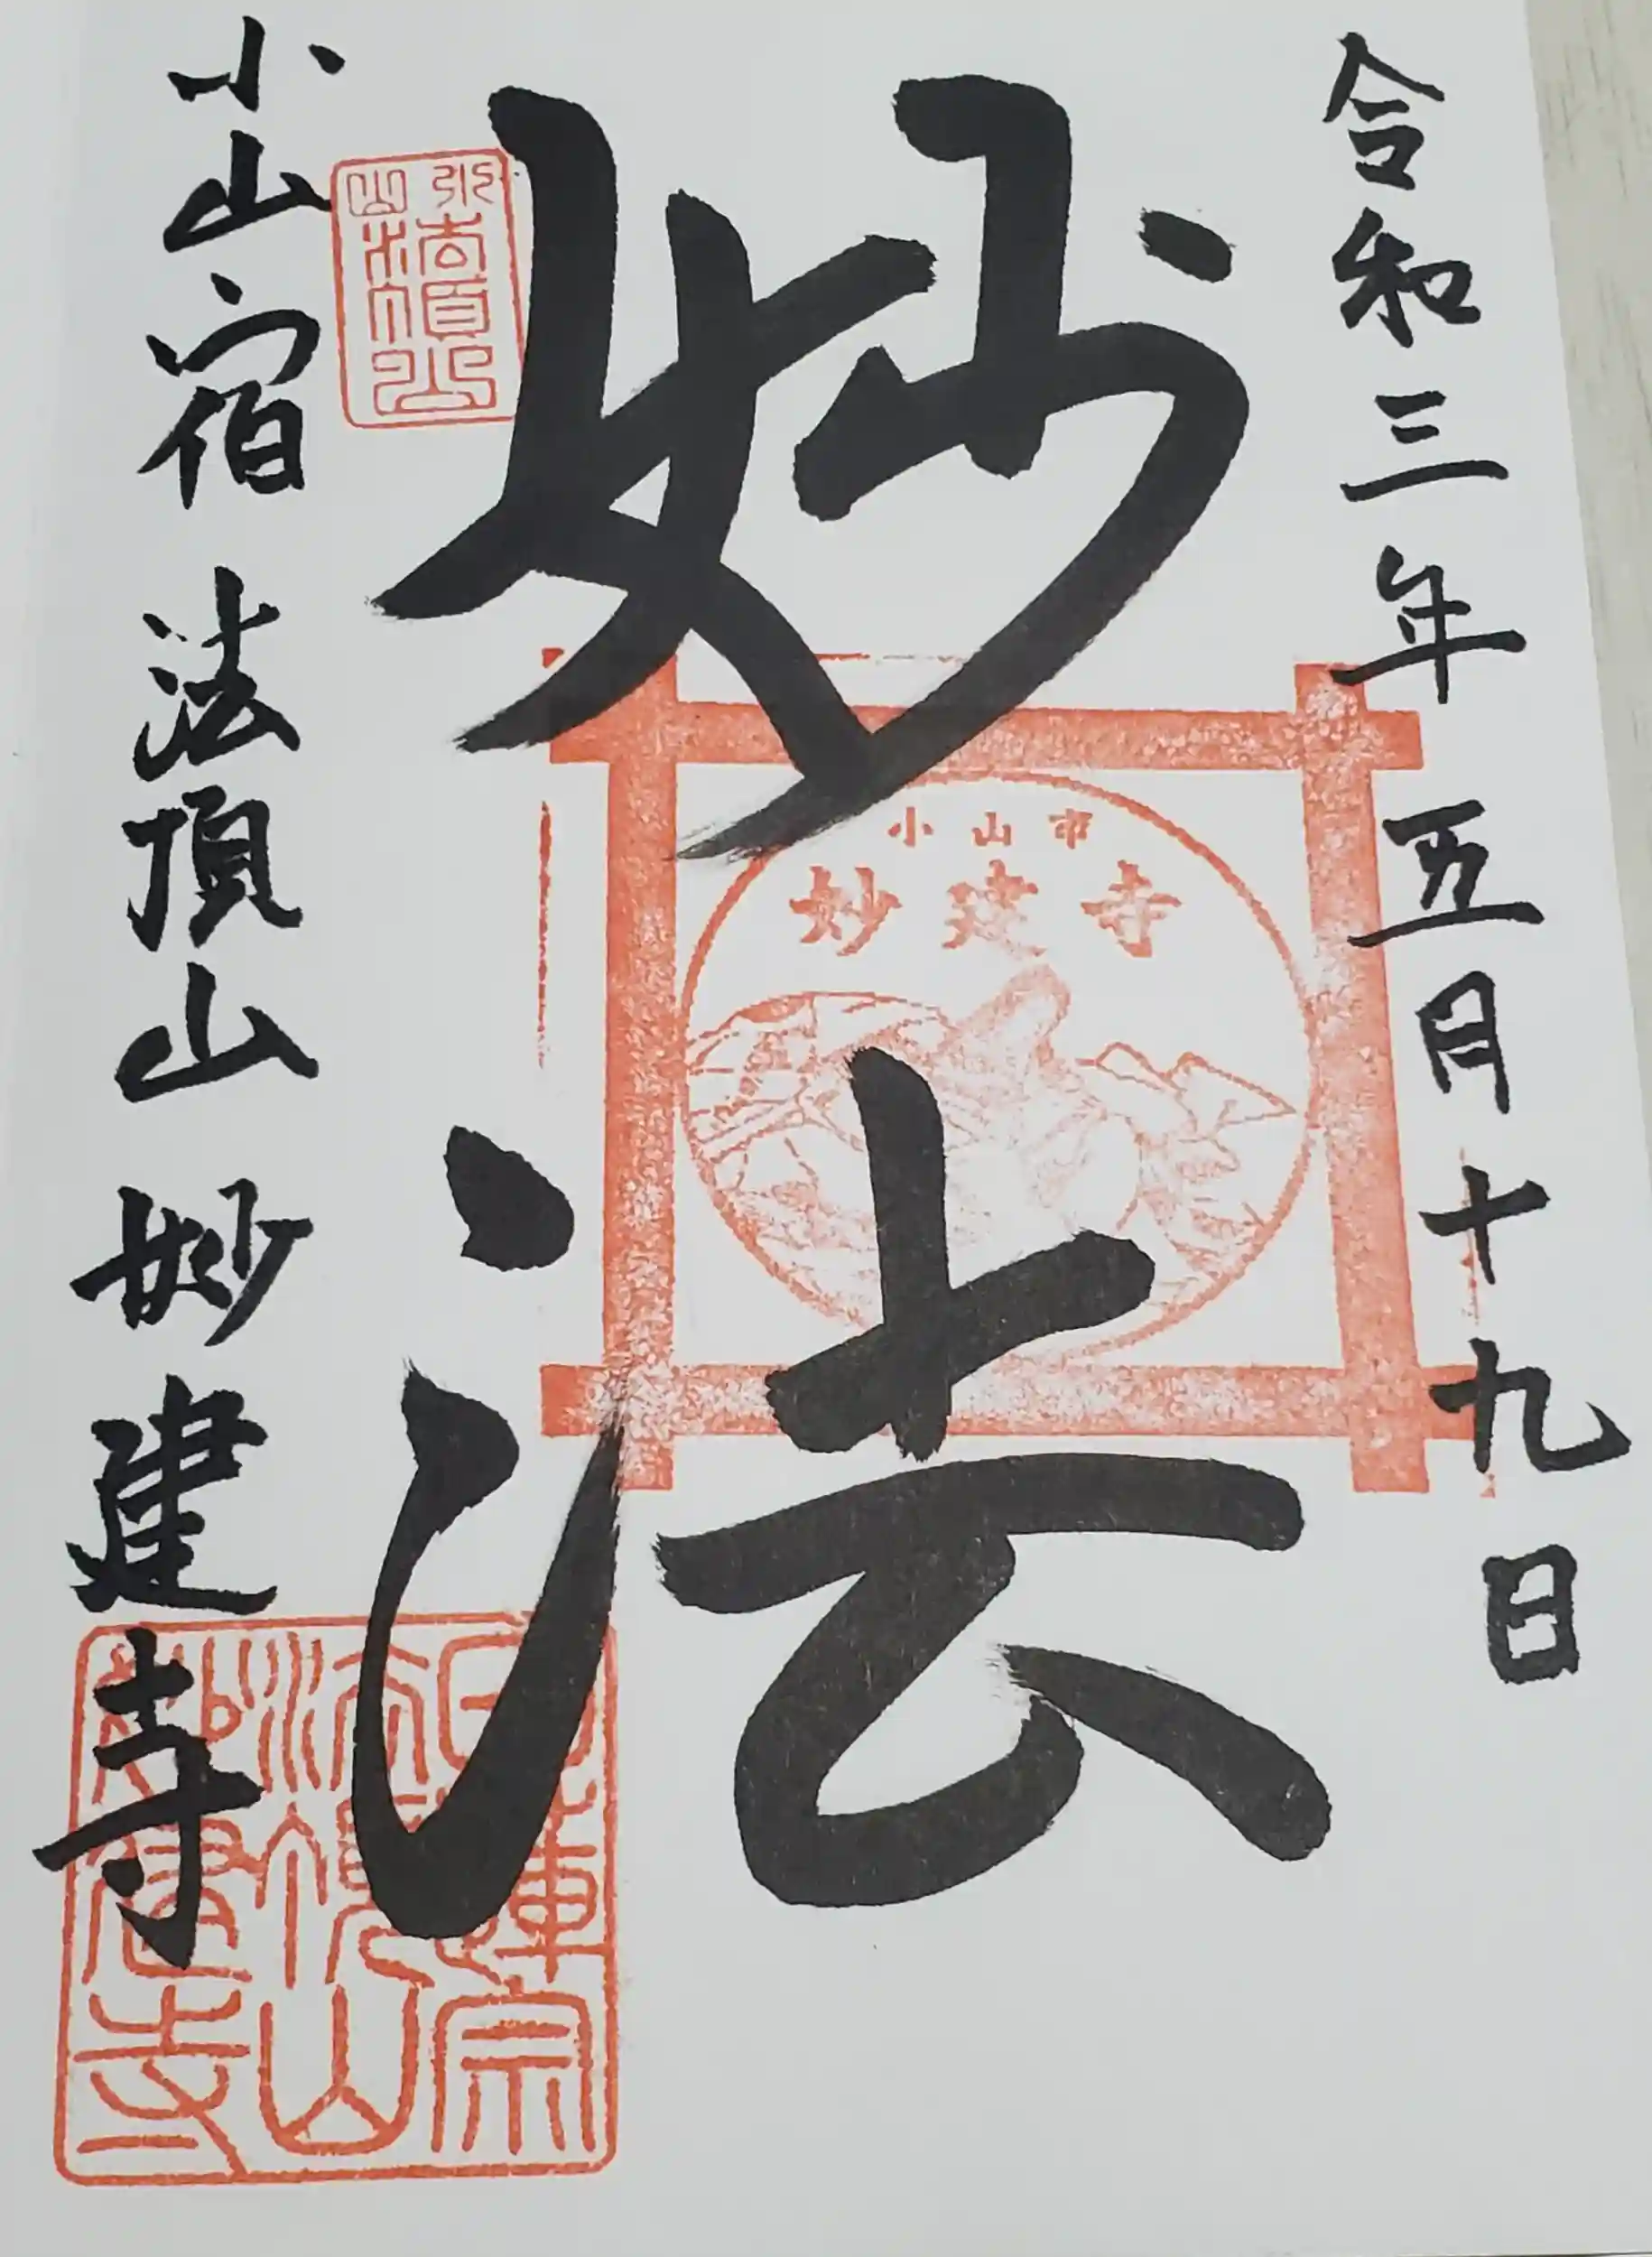 令和三年 五月十九日
妙法
小山市
妙建寺
小山
法頂山
小山宿 法頂山 妙建寺
日蓮宗
法頂山
妙建寺